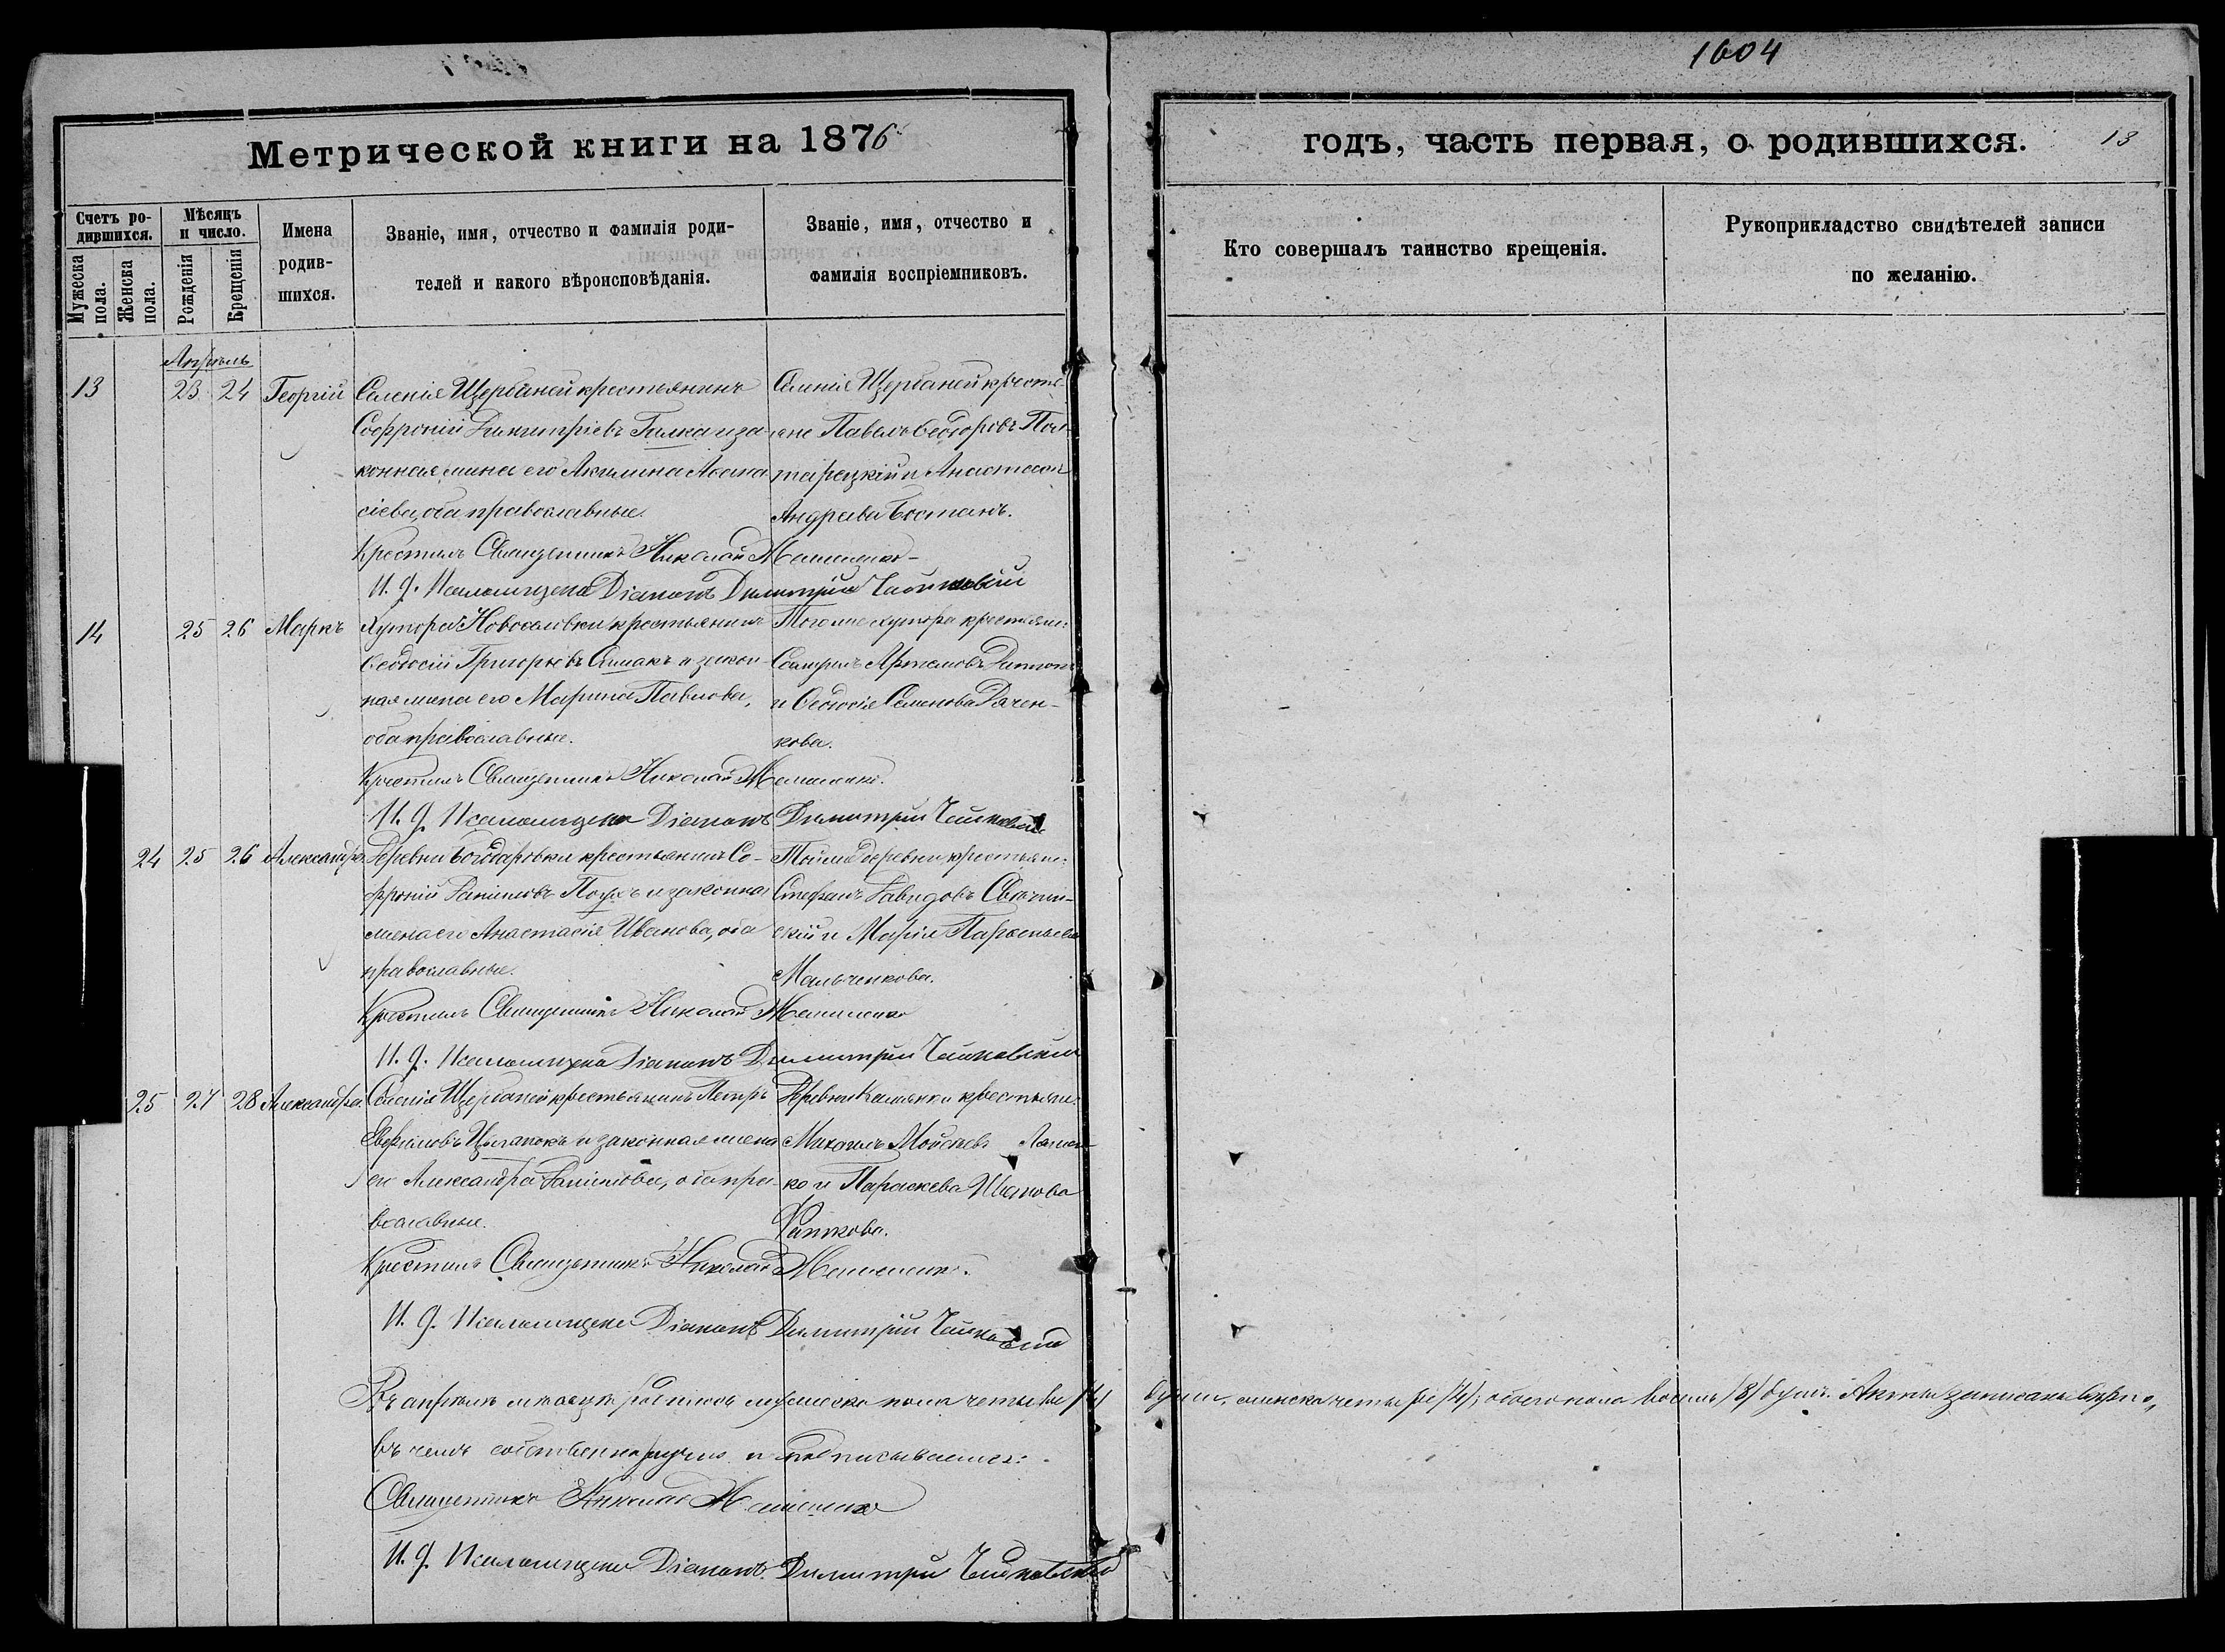 1604
Метрической книги на 1876
годъ, часть первая, о родившихся.
13
Счетъ ро-
дившихся.
Мужеска
пола.
Женска
пола.
Мѣсяцъ
и число.
Рожденія
Крещенія
Имена
родив-
шихся.
Званіе, имя, отчество и фамилія роди-
телей и какого вѣроисповѣданія.
Званіе, имя, отчество и
фамилія воспріемниковъ.
Кто совершалъ таинство крещенія.
Рукоприкладство свидѣтелей записи
по желанію.
Апрѣль
13 23 24 Георгій
Селенія Щербаней крестьянинъ
Софроній Димитріевъ Галка и за-
конная жена его Акилина Аѳана
сіева, оба православные.
Селенія Щербаней кресть-
яне Павелъ Ѳеодоровъ
и Анастасія
Андреева Бостанъ.
Крестилъ Священникъ Николай
И. д. Псаломщика Діаконъ Димитрій Чайковскій
14 25 26 Маркъ
Хутора Новоселовки крестьянинъ
Ѳеодосій Григорьевъ Симакъ и закон-
ная жена его Марина Павлова,
оба православные.
Того же хутора крестьяне:
Артемовъ
и Ѳеодосія Семенова Дячен-
кова.
Крестилъ Священникъ Николай
И. д. Псаломщика Діаконъ Димитрій Чайковскій
24 25 26 Александра
Деревни Богодаровки крестьянинъ Со-
фроній Даниловъ и законная
жена его Анастасія Иванова, оба
православные.
Той же деревни крестьяне:
Стефанъ Давидовъ
скій и Марія
Мальченкова.
Крестилъ Священникъ Николай
И. д. Псаломщика Діаконъ Димитрій Чайковскій
25 27 28 Александра.
Селенія Щербаней крестьянинъ Петръ
Евфимовъ Цыганокъ и законная жена
его Александра Данилова, оба пра-
вославные.
Деревни Камянки крестьяне:
Михаилъ Моисеевъ
ко и Параскева Иванова
Крестилъ Священникъ Николай
И. д. Псаломщика Діаконъ Димитрій Чайковскій
Въ апрѣлѣ мѣсяцѣ родилось мужеска пола четыре /4/ души, женска четыре /4/; обоего пола восемь /8/ душъ. Акты записаны вѣрно,
въ чемъ собственноручно и подписываемся:
Священникъ Николай
И. д. Псаломщика Діаконъ Димитрій Чайковскій